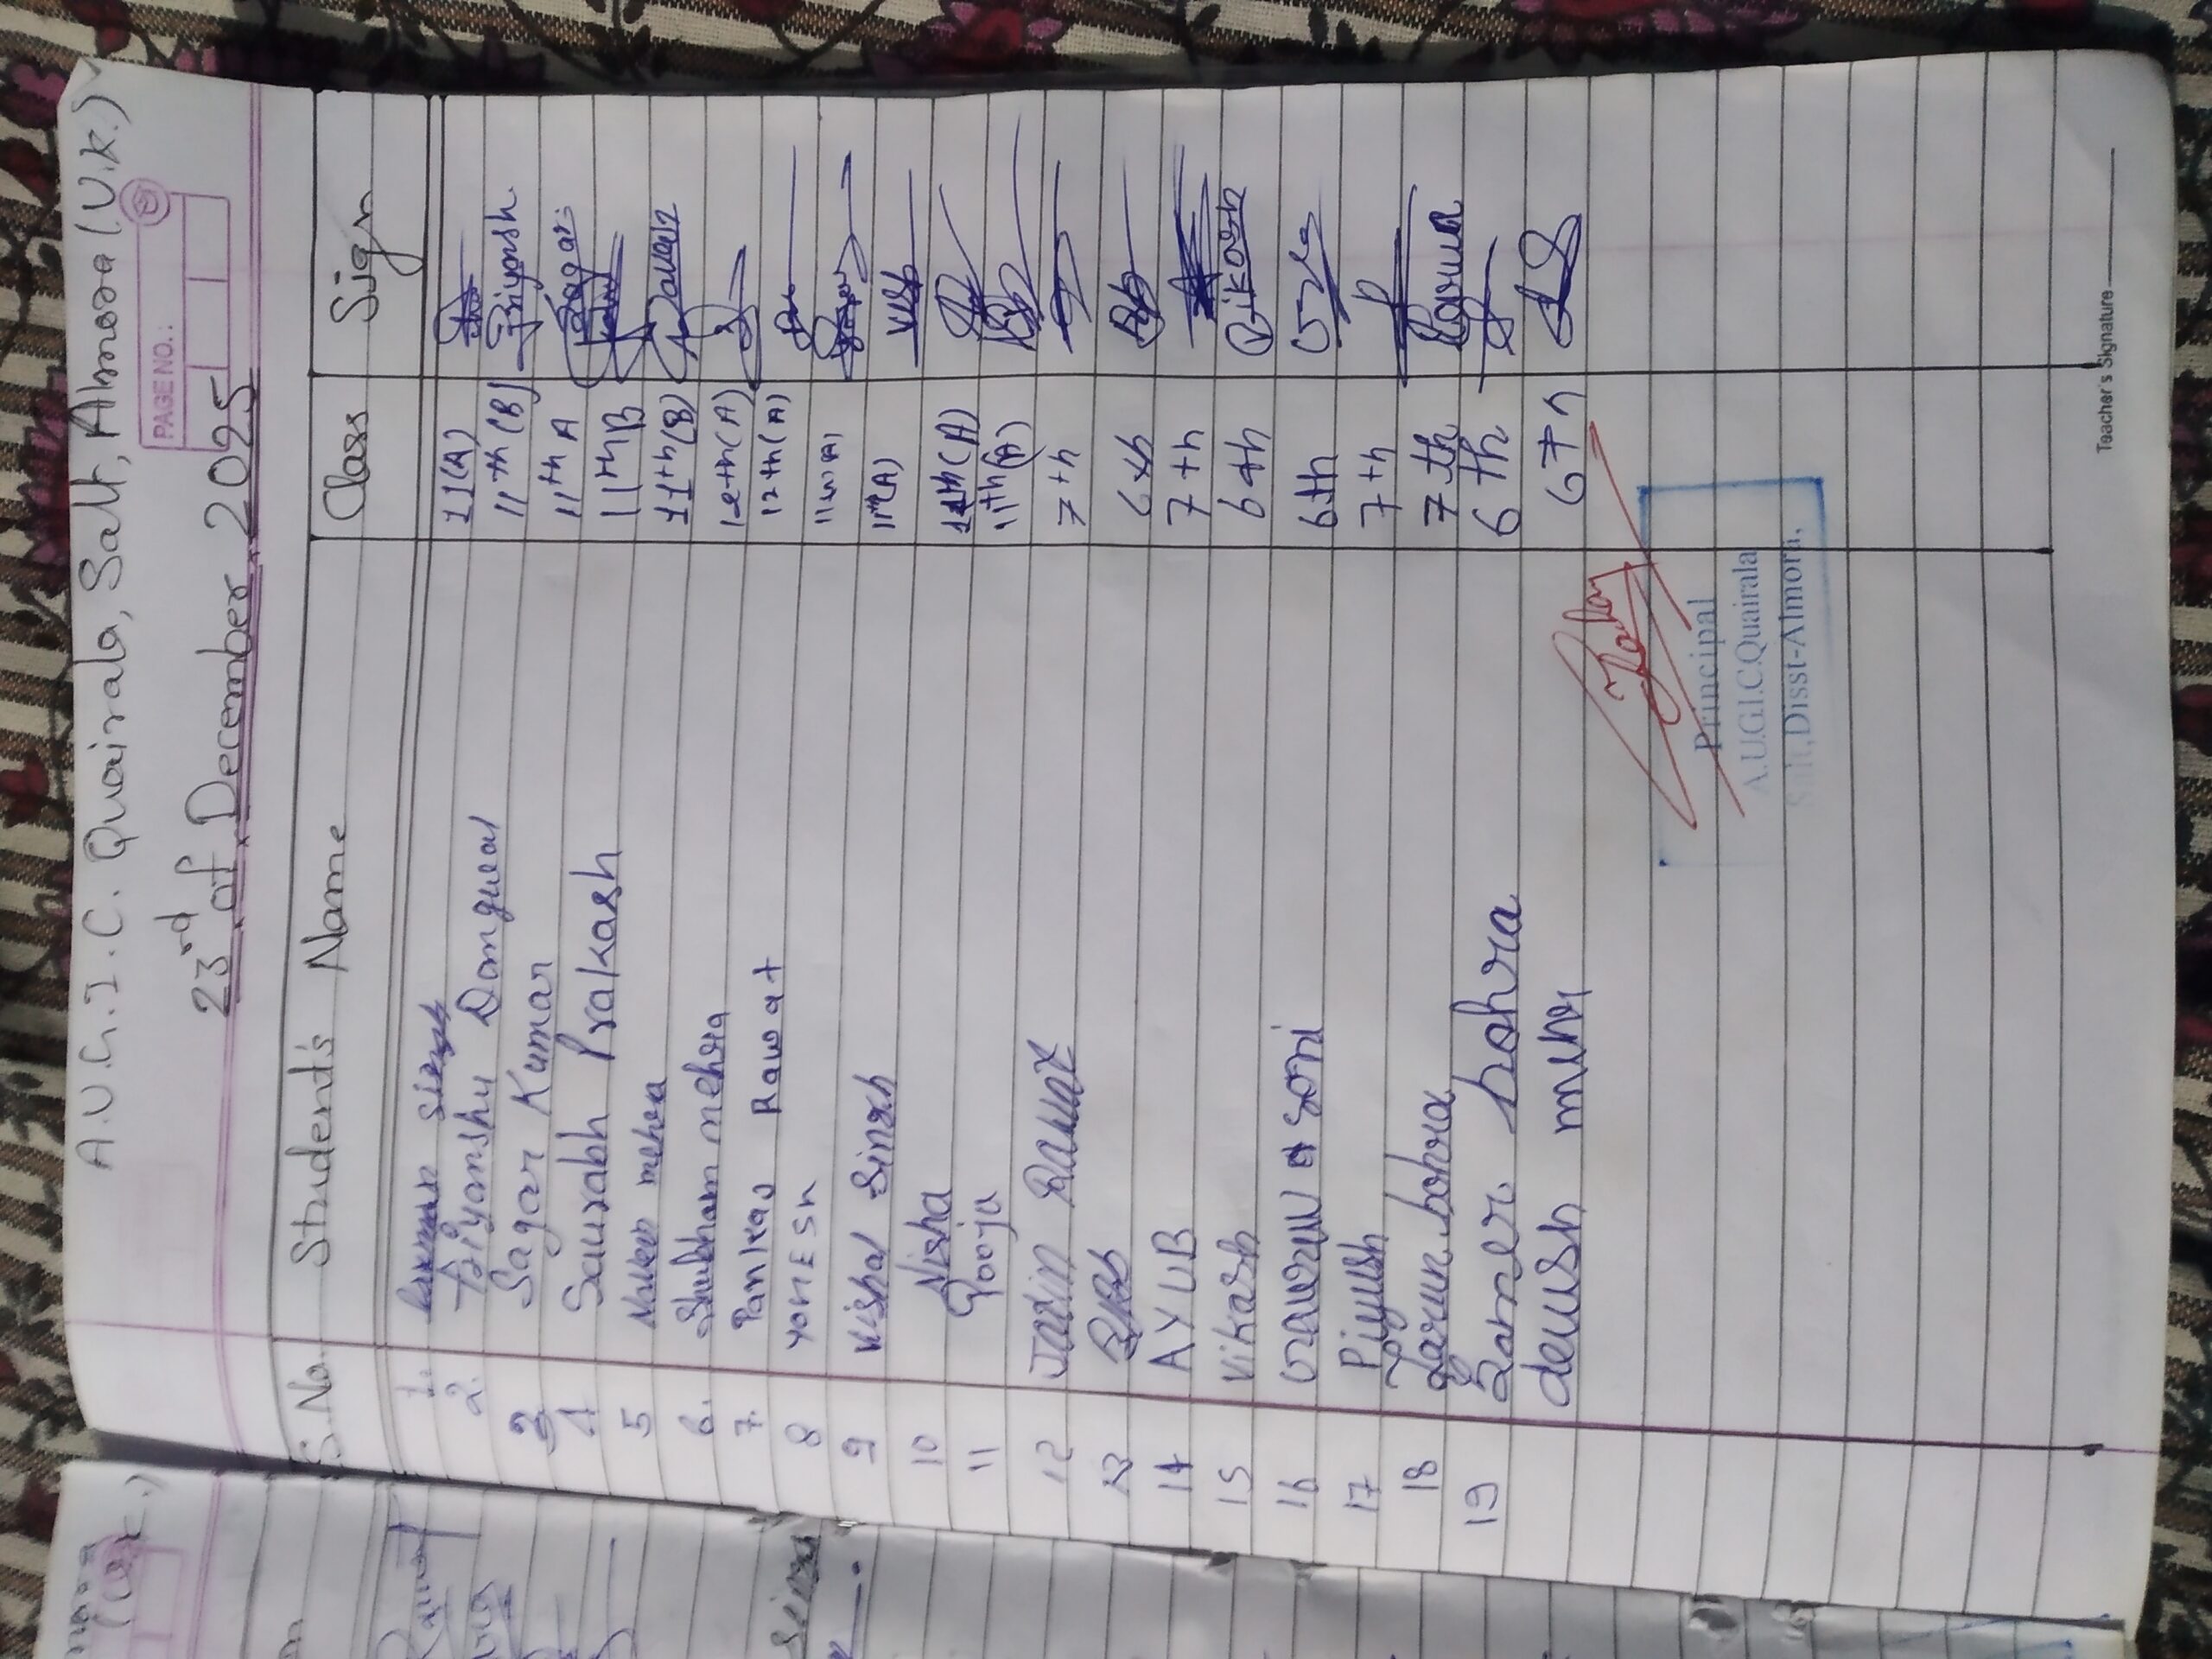 A.U.G.I.C. Quairala, Salt, Almora (U.K.)
PAGE NO.:
23rd of December 2025
S.No. Student's Name Class Sign
1. Singh 11(A)
2. Priyanshu Dangwal 11th (B) Priyansh
3 Sagar Kumar 11th A Sagar
4 Saurabh Prakash 11th B
5 mehra 11th (B)
6. Shubham mehra 12th (A)
7. Pankaj Rawat 12th (A)
8 YOGESH 11th (A)
9 Vishal Singh 11th (A) Vish
10 Nisha 11th (A)
11 Pooja 11th (A)
12 Rawat 7th
13 6th
14 AYUB 7th
15 Vikash 6th Vikash
16 soni 6th
17 Piyush 7th
18 Tarun bohra 7th Tarun
19 bohra 6th
6th
Principal
A.U.G.I.C.Quairala
Salt,Disst-Almora.
Teacher's Signature